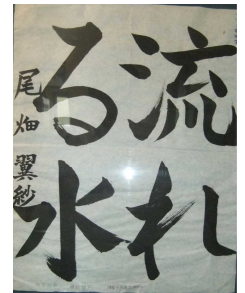 流れ
る水
尾畑翼紗